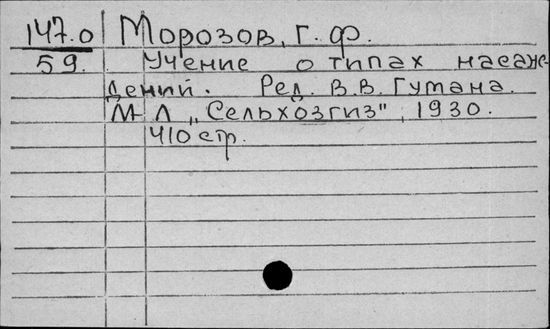 147.0 Морозов, Г. Ф.
59. Учение о типах насаж-
дений. Ред. В.В. Гутана.
М-Л „Сельхозгиз", 1930.
410 стр.